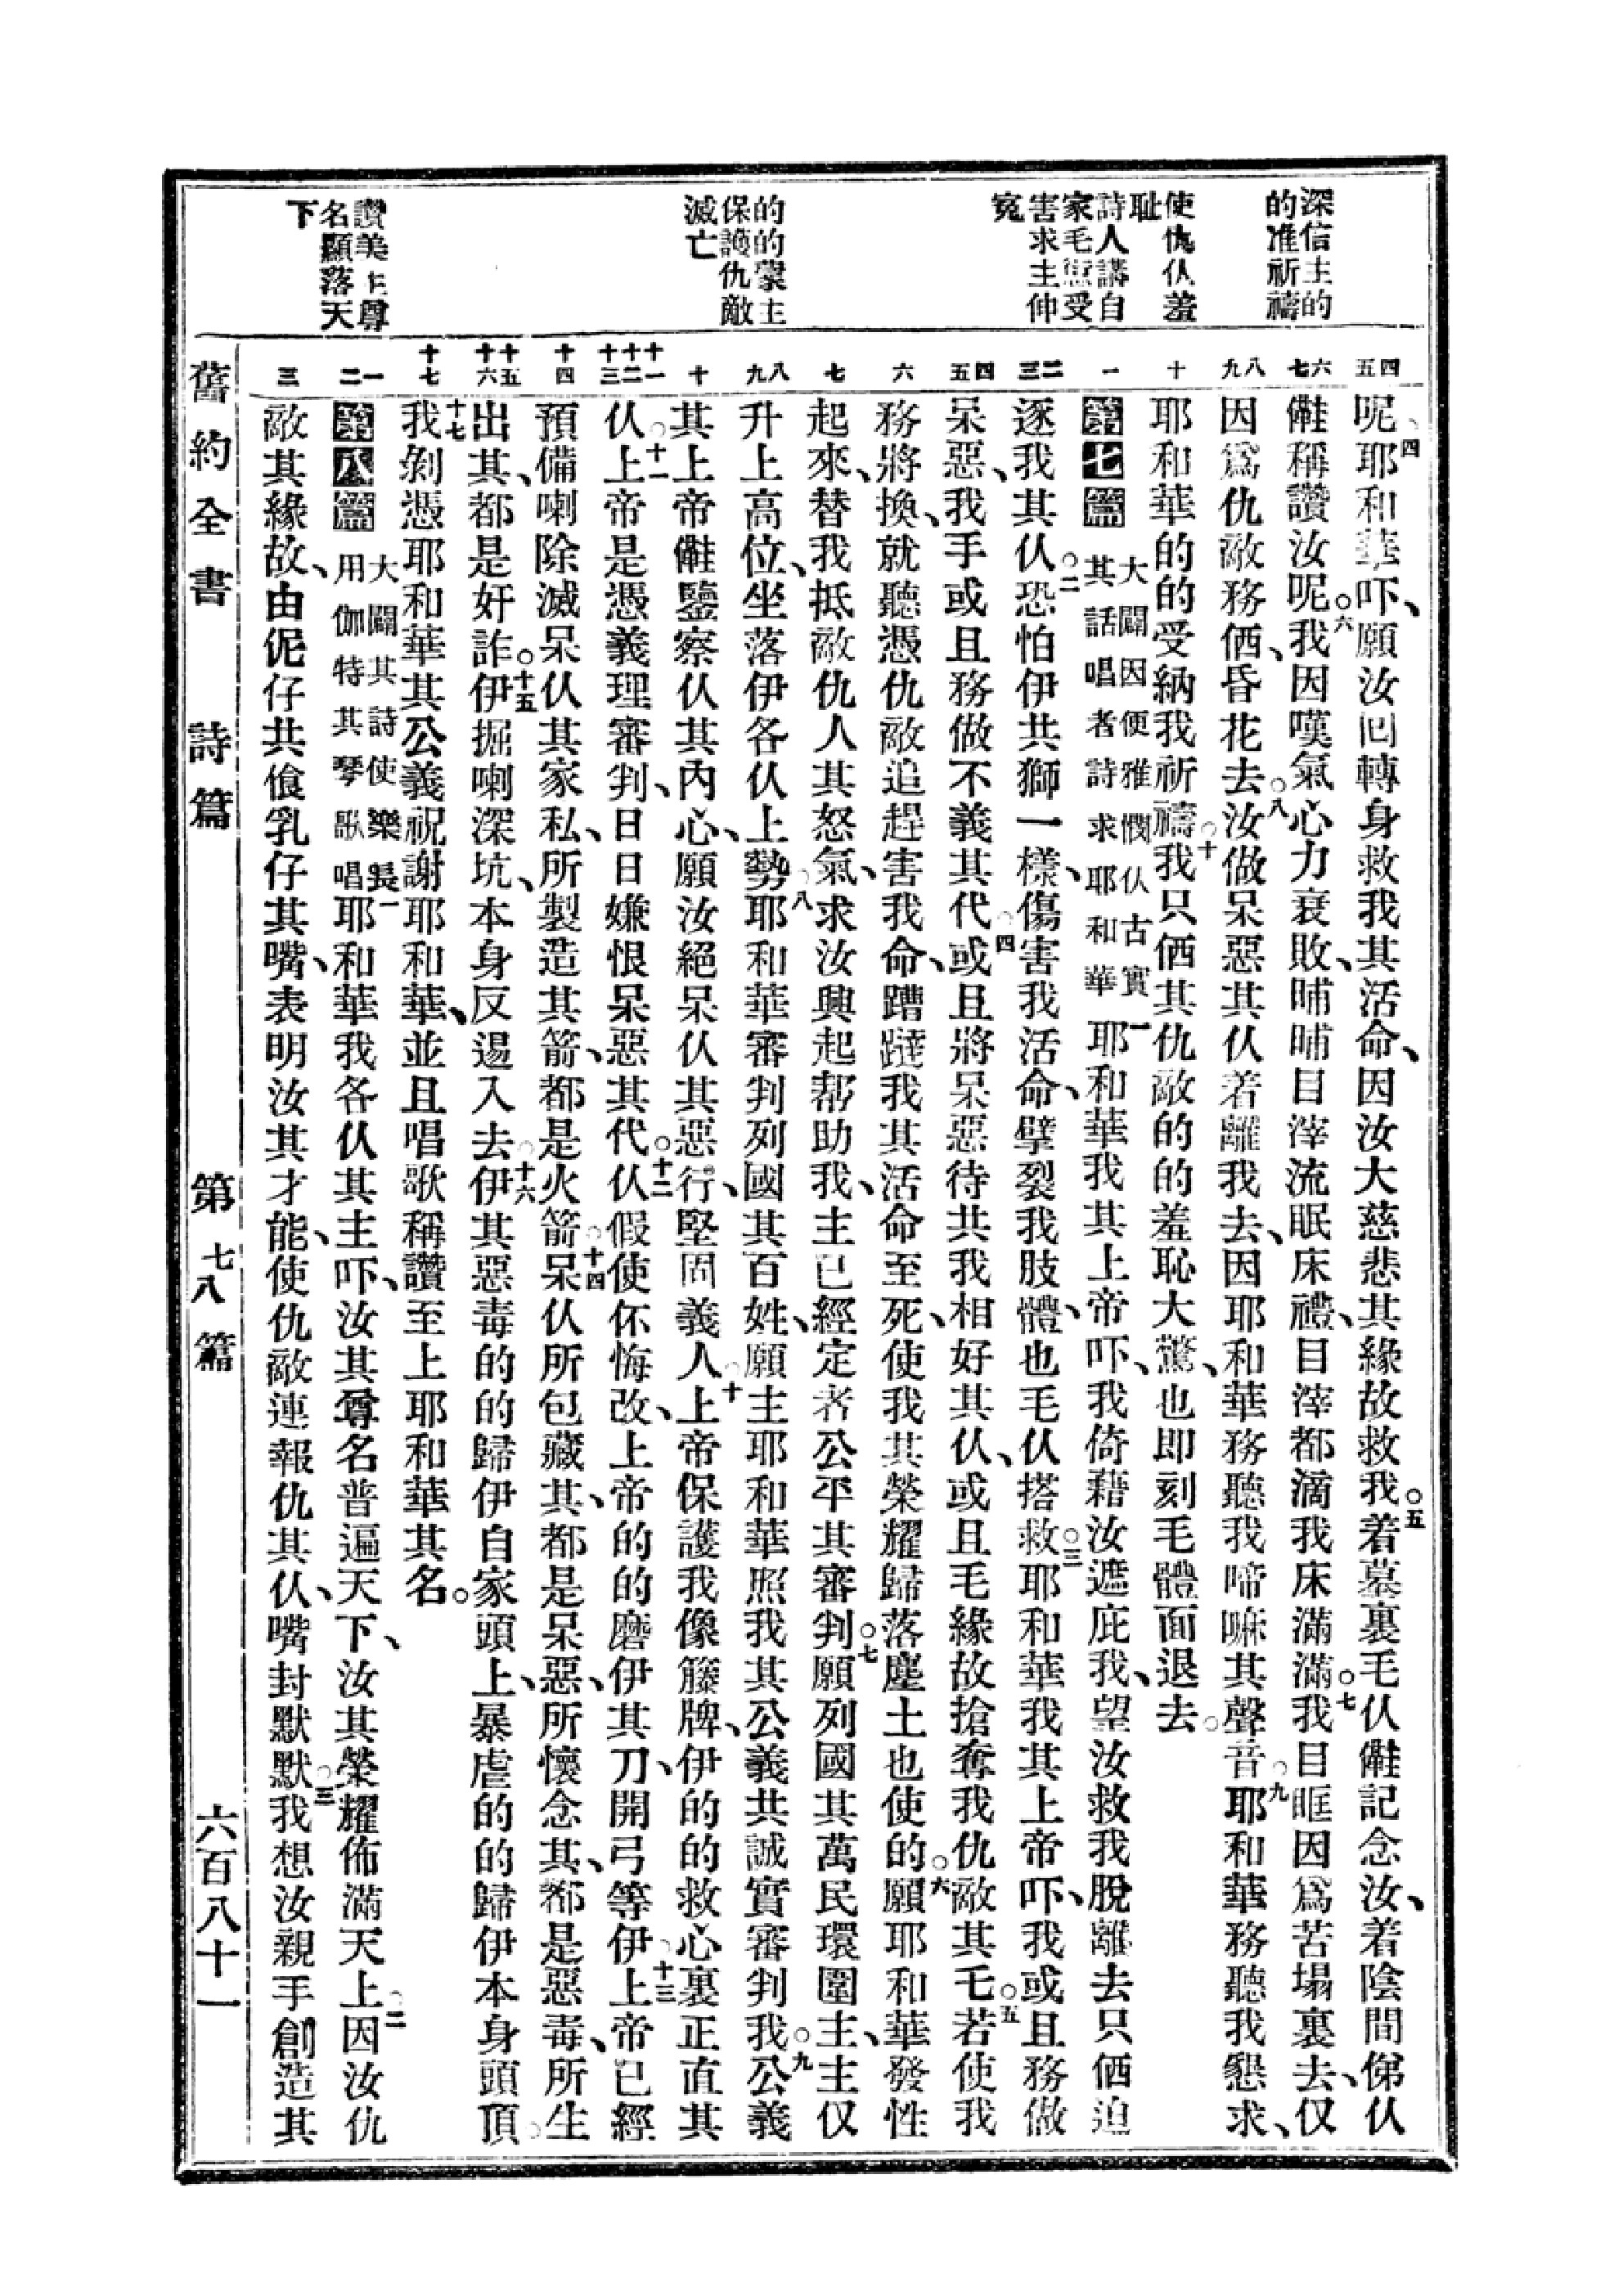 深信主的
的准祈禱
使仇仇羞
耻
詩人講自
家毛受
害求主伸
冤
的的蒙主
保護仇敵
滅亡
讚美主尊
名顯落天
下
四
五
六
七
八
九
十
一
二
三
四
五
六
七
八
九
十
十一
十二
十三
十四
十五
十六
十七
一
二
三
呢四耶和華吓、願汝回轉身救我其活命、因汝大慈悲其緣故救我。五着墓裏毛仈𣍐記念汝、着陰間俤仈
𣍐稱讚汝呢。六我因嘆氣心力衰敗、晡晡目滓流眠床禮、目滓都滴我床滿滿。七我目眶因爲苦塌裏去、仅
因爲仇敵務価、昏花去。八汝做呆惡其仈着離我去、因耶和華務聽我啼嘛其聲音。九耶和華務聽我懇求、
耶和華的的受納我祈禱。十我只価其仇敵的的羞恥大驚、也即刻毛體面退去。
第七篇 大闢因便雅憫仈古實
其話唱者詩求耶和華 一耶和華我其上帝吓、我倚藉汝遮庇我、望汝救我脫離去只価迫
逐我其仈。二恐怕伊共獅一樣、傷害我活命、擘裂我肢體、也毛仈搭救。三耶和華我其上帝吓、我或且務做
呆惡、我手或且務做不義其代。四或且將呆惡待共我相好其仈、或且毛緣故搶奪我仇敵其。五毛若使我
務將換、就聽憑仇敵追趕害我命、蹧躂我其活命至死、使我其榮耀歸落塵土也使的。六願耶和華發性
起來、替我抵敵仇人其怒氣、求汝興起帮助我、主已經定者公平其審判。七願列國其萬民環圍主、主仅
升上高位、坐落伊各仈上勢。八耶和華審判列國其百姓、願主耶和華照我其公義共誠實審判我。九公義
其上帝𣍐鑒察仈其內心、願汝絕呆仈其惡行、堅固義人。十上帝保護我像籐牌、伊的的救心裏正直其
仈。十一上帝是憑義理審判、日日嫌恨呆惡其代。十二仈假使伓悔改、上帝的的磨伊其刀、開弓等伊。十三上帝已經
預備喇除滅呆仈其家私、所製造其箭、都是火箭。十四呆仈所包藏其、都是呆惡、所懷念其、都是惡毒、所生
出其、都是奸詐。十五伊掘喇深坑、本身反逿入去。十六伊其惡毒的的歸伊自家頭上、暴虐的的歸伊本身頭頂。
十七我剝憑耶和華其公義祝謝耶和華、並且唱歌稱讚至上耶和華其名。
第八篇 大闢其詩使樂長
用伽特其琴歌唱 一耶和華我各仈其主吓、汝其尊名普遍天下、汝其榮耀佈滿天上。二因汝仇
敵其緣故、由伲仔共飡乳仔其嘴、表明汝其才能、使仇敵連報仇其仈、嘴封默默。三我想汝親手創造其
舊約全書 詩篇 第七八篇 六百八十一